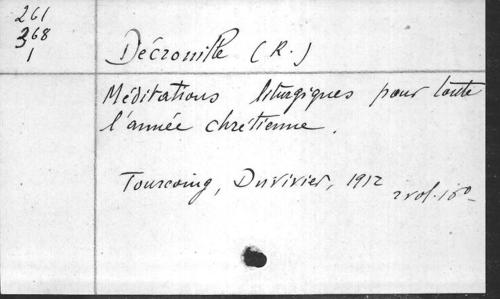 261
368
1
Décrouille (R.)
Méditations liturgiques pour toute
l'année chrétienne.
Tourcoing, Duvivier, 1912
2 vol. 18°